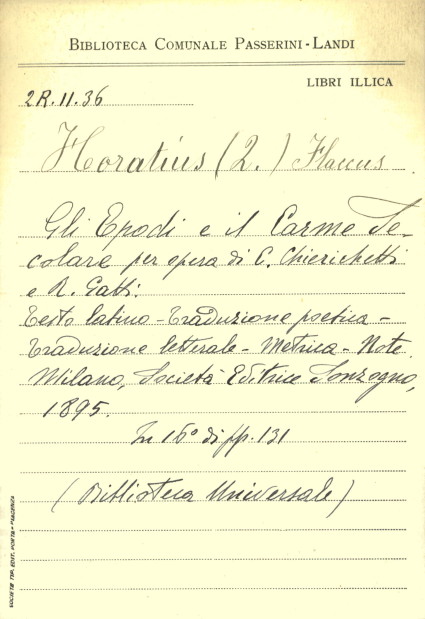 BIBLIOTECA COMUNALE PASSERINI-LANDI
LIBRI ILLICA
2R.11.36
Horatius (2.) Flaccus
Gli Epodi e il Carme Se-
colare per opera di C. Chierichetti
e R. Gatti.
Testo latino - Traduzione poetica -
Traduzione letterale - Metrica - Note.
Milano, Società Editrice Sonzogno,
1895.
In 16° di pp. 131
(Biblioteca Universale)
SOCIETÀ TIP. EDIT. PORTA - PIACENZA